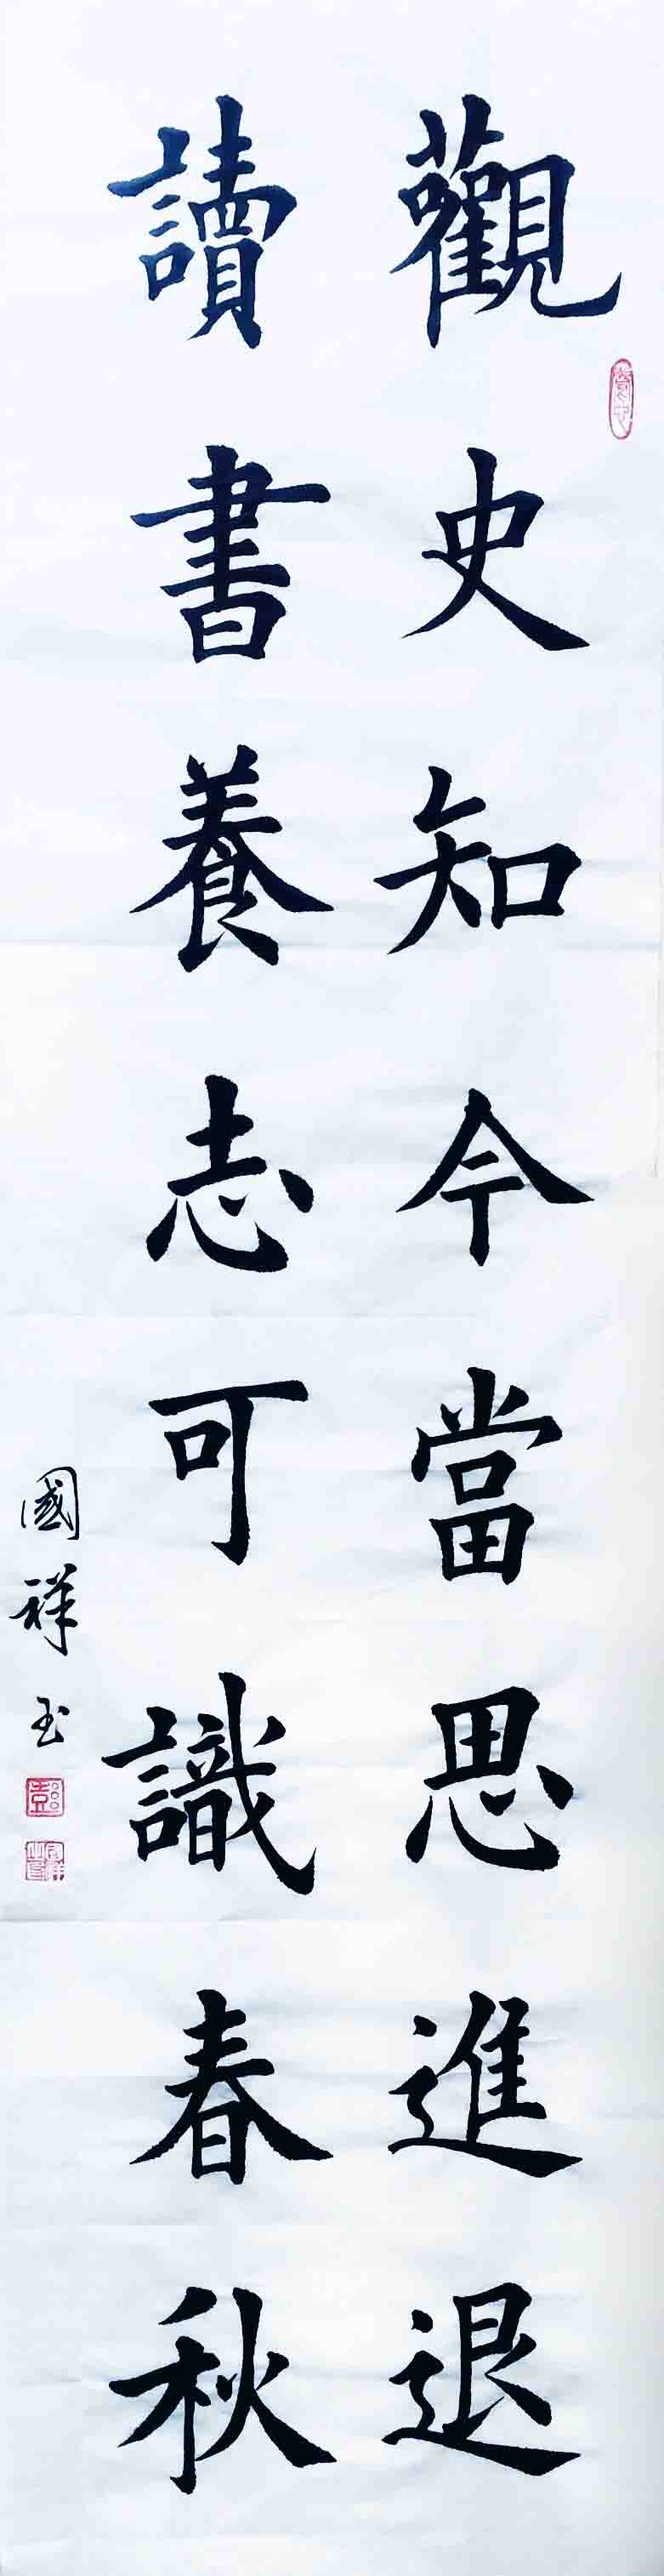 觀史知今當思進退
讀書養志可識春秋
國祥